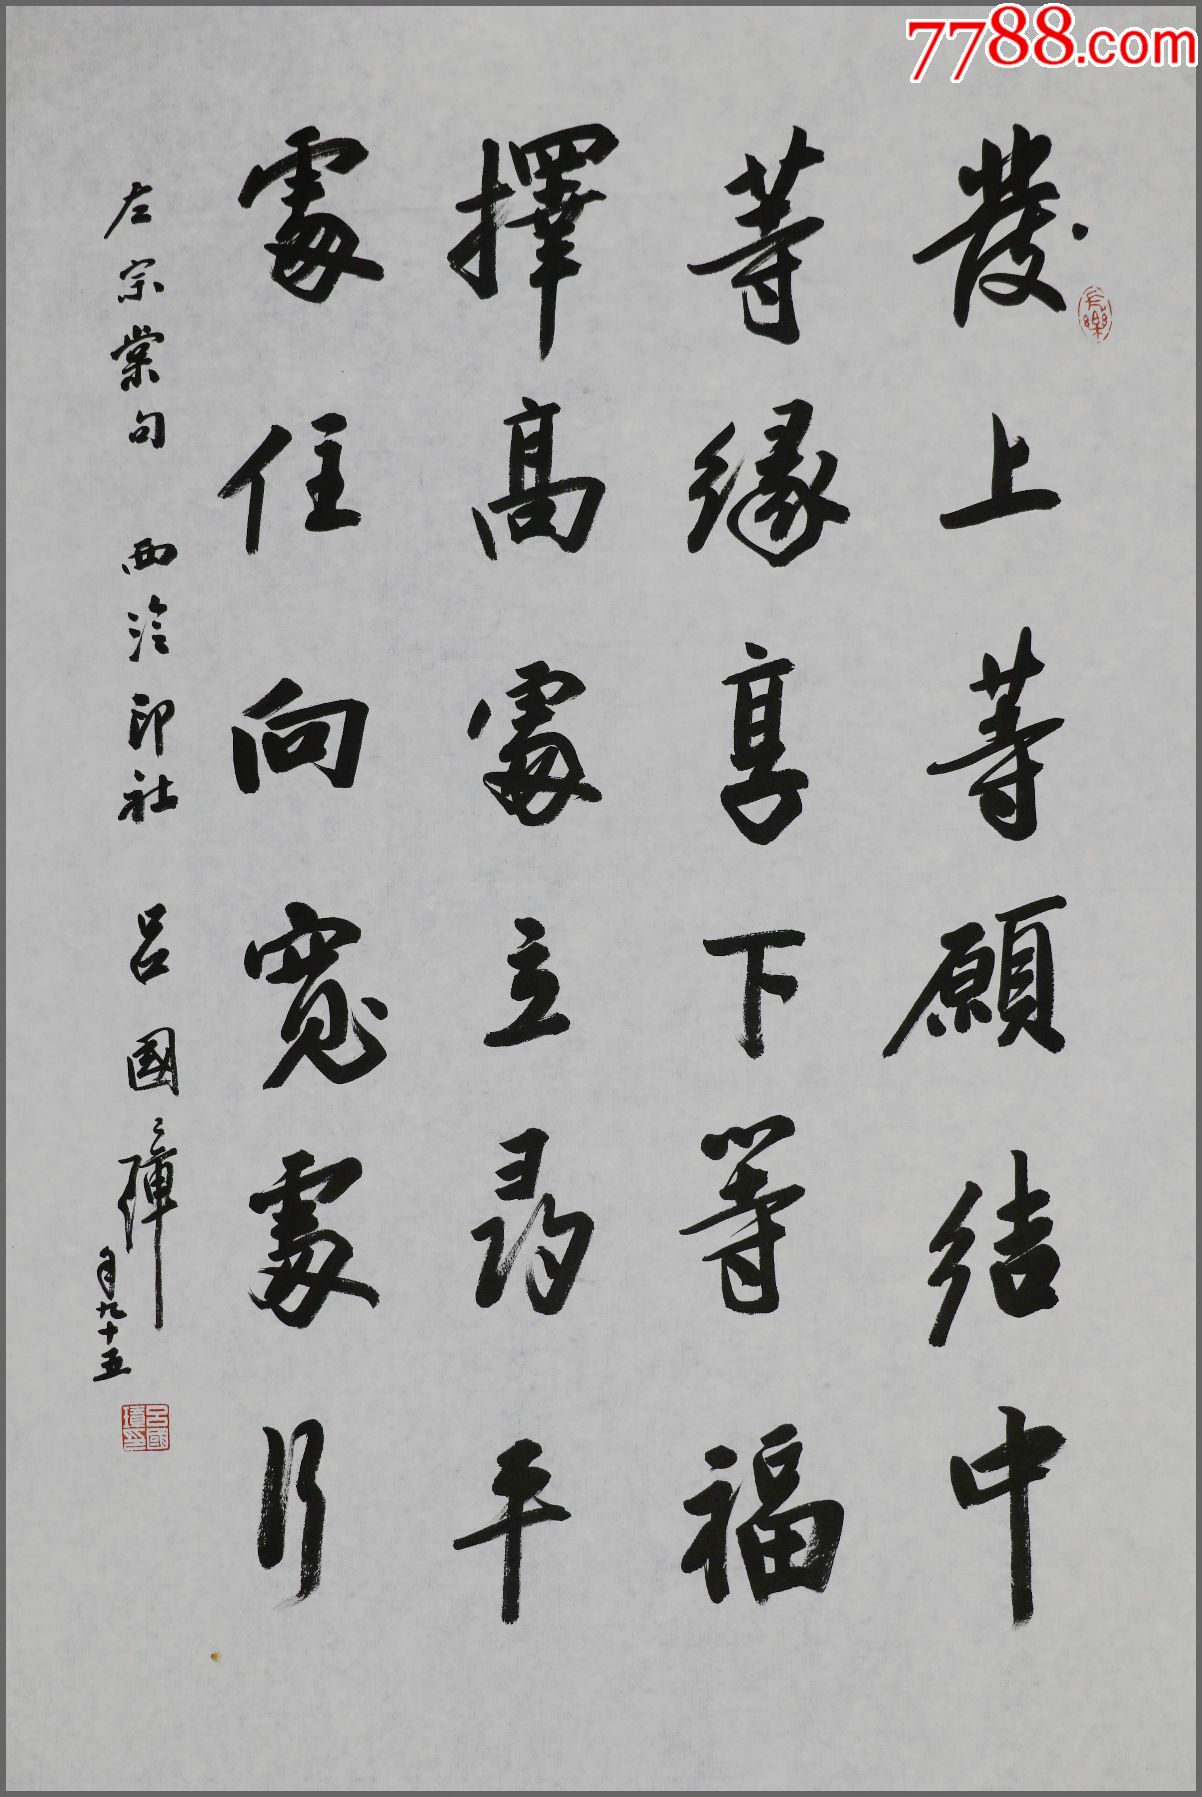 7788.com
發上等願結中
等緣享下等福
擇高處立尋平
處住向寬處行
左宗棠句 西泠印社 呂國璋 年九十五
長樂